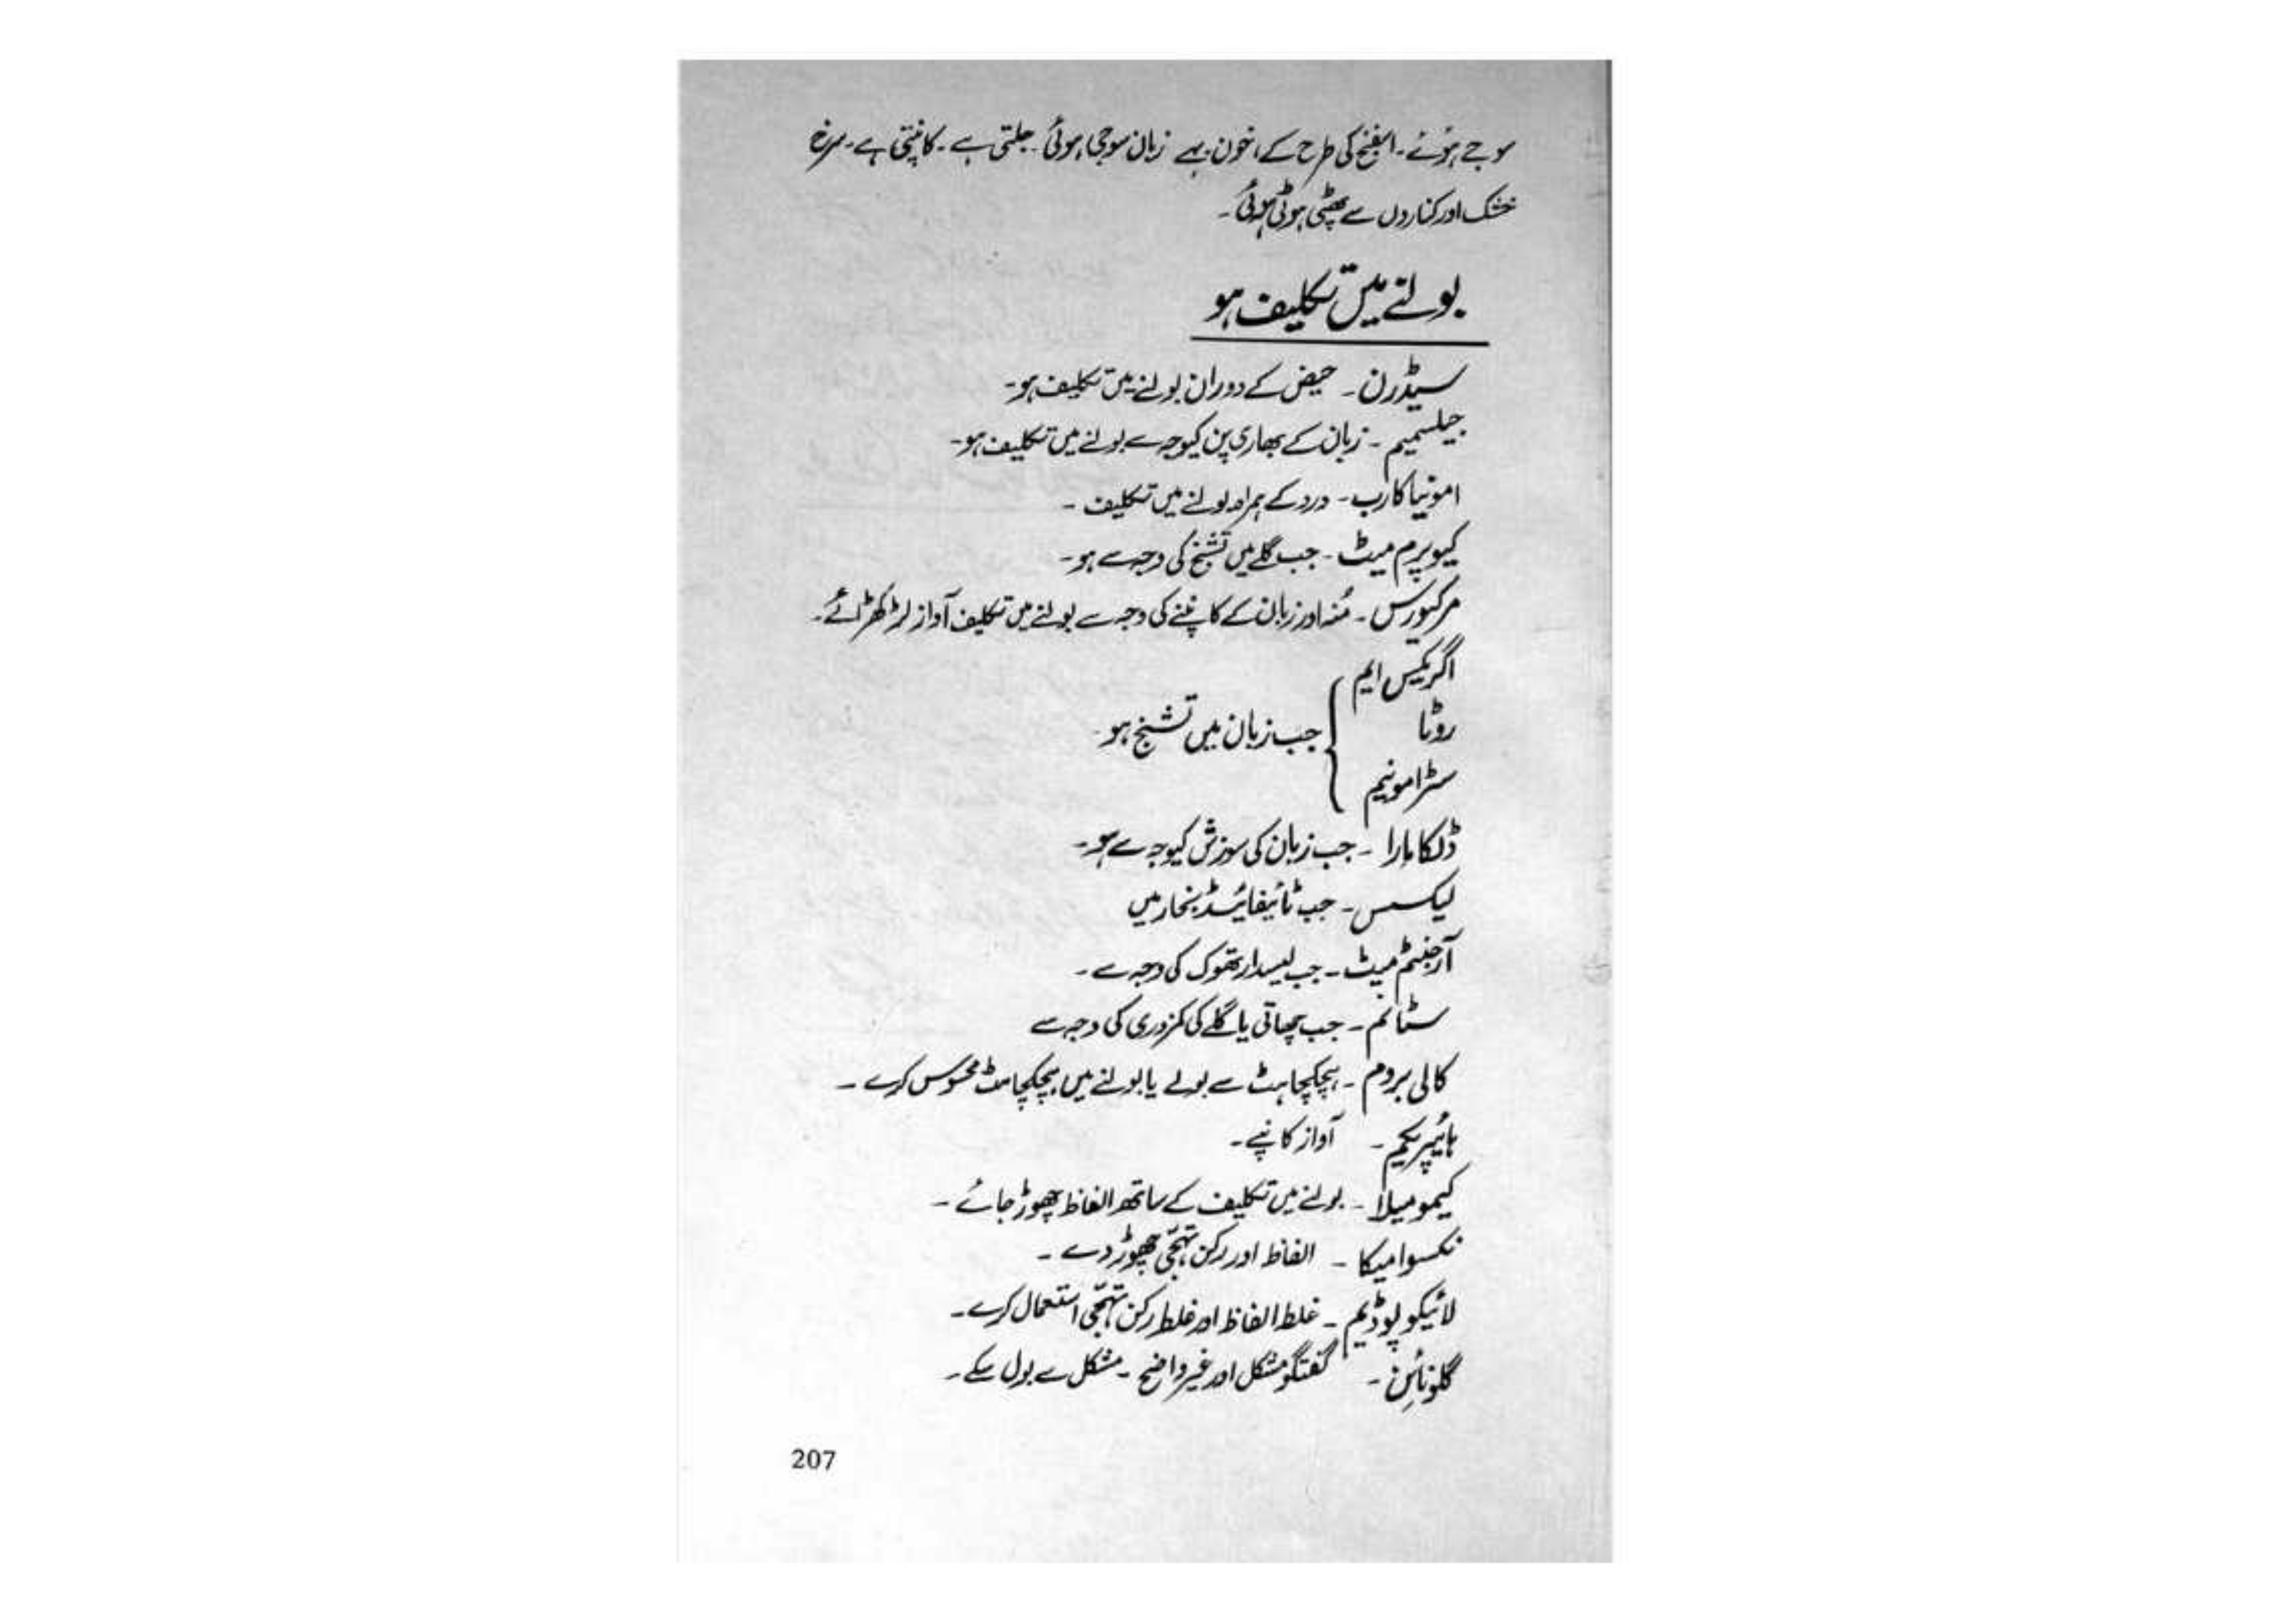 سوجے ہوئے۔ اسفنج کی طرح کے، خون بہے زبان سوجی ہوئی۔ جلتی ہے۔ کانپتی ہے۔ سرخ
خشک اور کناروں سے پھٹی ہوئی ہوئی۔
بولنے میں تکلیف ہو
سیڈرن۔ حیض کے دوران بولنے میں تکلیف ہو۔
جیلسمیم۔ زبان کے بھاری پن کیوجہ سے بولنے میں تکلیف ہو۔
امونیا کارب۔ درد کے ہمراہ بولنے میں تکلیف۔
کیوپرم میٹ۔ جب گلے میں تشنج کی وجہ سے ہو۔
مرکیورس۔ مُنہ اور زبان کے کانپنے کی وجہ سے بولنے میں تکلیف آواز لڑکھڑائے۔
اگریکس ایم
روٹا
سٹرامونیم
جب زبان میں تشنج ہو
ڈلکامارا۔ جب زبان کی سوزش کیوجہ سے ہو۔
لیکسس۔ جب ٹائیفائیڈ بخار میں
آرجنٹم میٹ۔ جب لیسدار تھوک کی وجہ سے۔
سٹانم۔ جب چھاتی یا گلے کی کمزوری کی وجہ سے
کالی بروم۔ ہچکچاہٹ سے بولے یا بولنے میں ہچکچاہٹ محسوس کرے۔
ہائیپریکم۔ آواز کانپے۔
کیمومیلا۔ بولنے میں تکلیف کے ساتھ الفاظ چھوڑ جائے۔
نکسوامیکا۔ الفاظ اور رکن تہجّی چھوڑ دے۔
لائیکوپوڈیم۔ غلط الفاظ اور غلط رکن تہجّی استعمال کرے۔
گلونائن۔ گفتگو مشکل اور غیر واضح۔ مشکل سے بول سکے۔
207